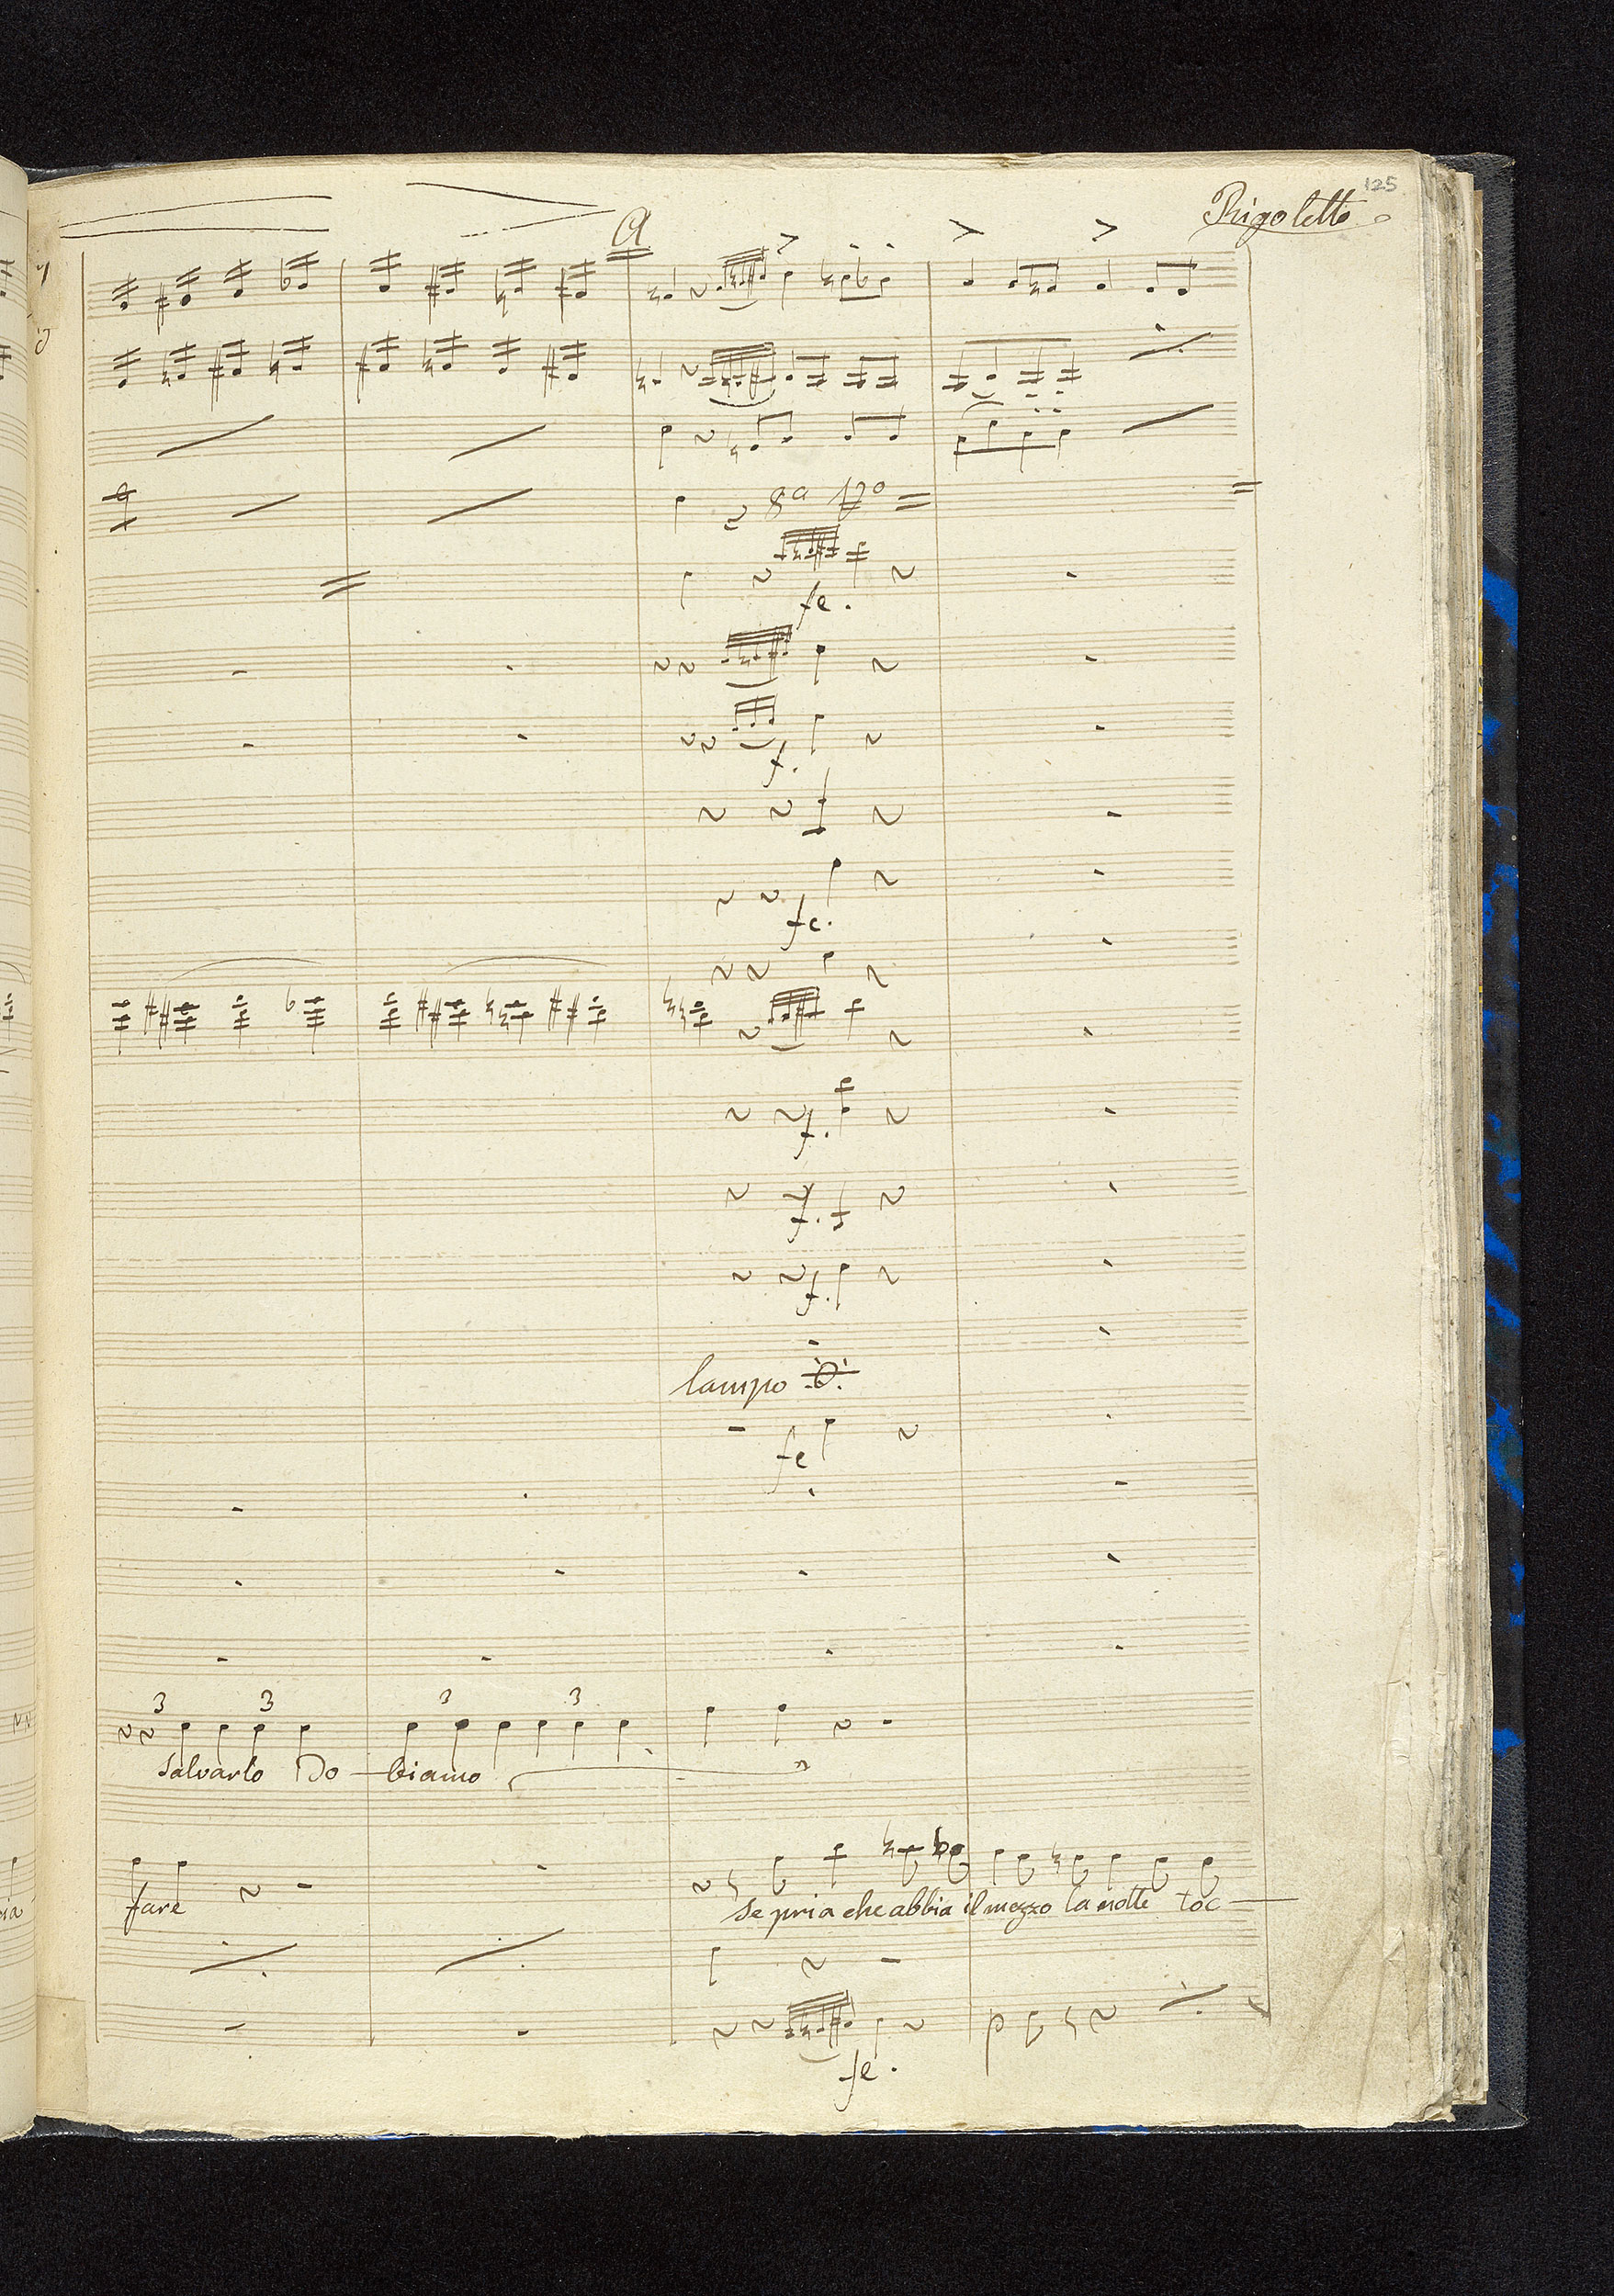 125
Rigoletto
A
8a
fe.
f.
fe.
f.
f.
f.
lampo
fe
3 3 3 3
salvarlo Do-biamo
fare
se pria che abbia il mezzo la notte toc-
fe.